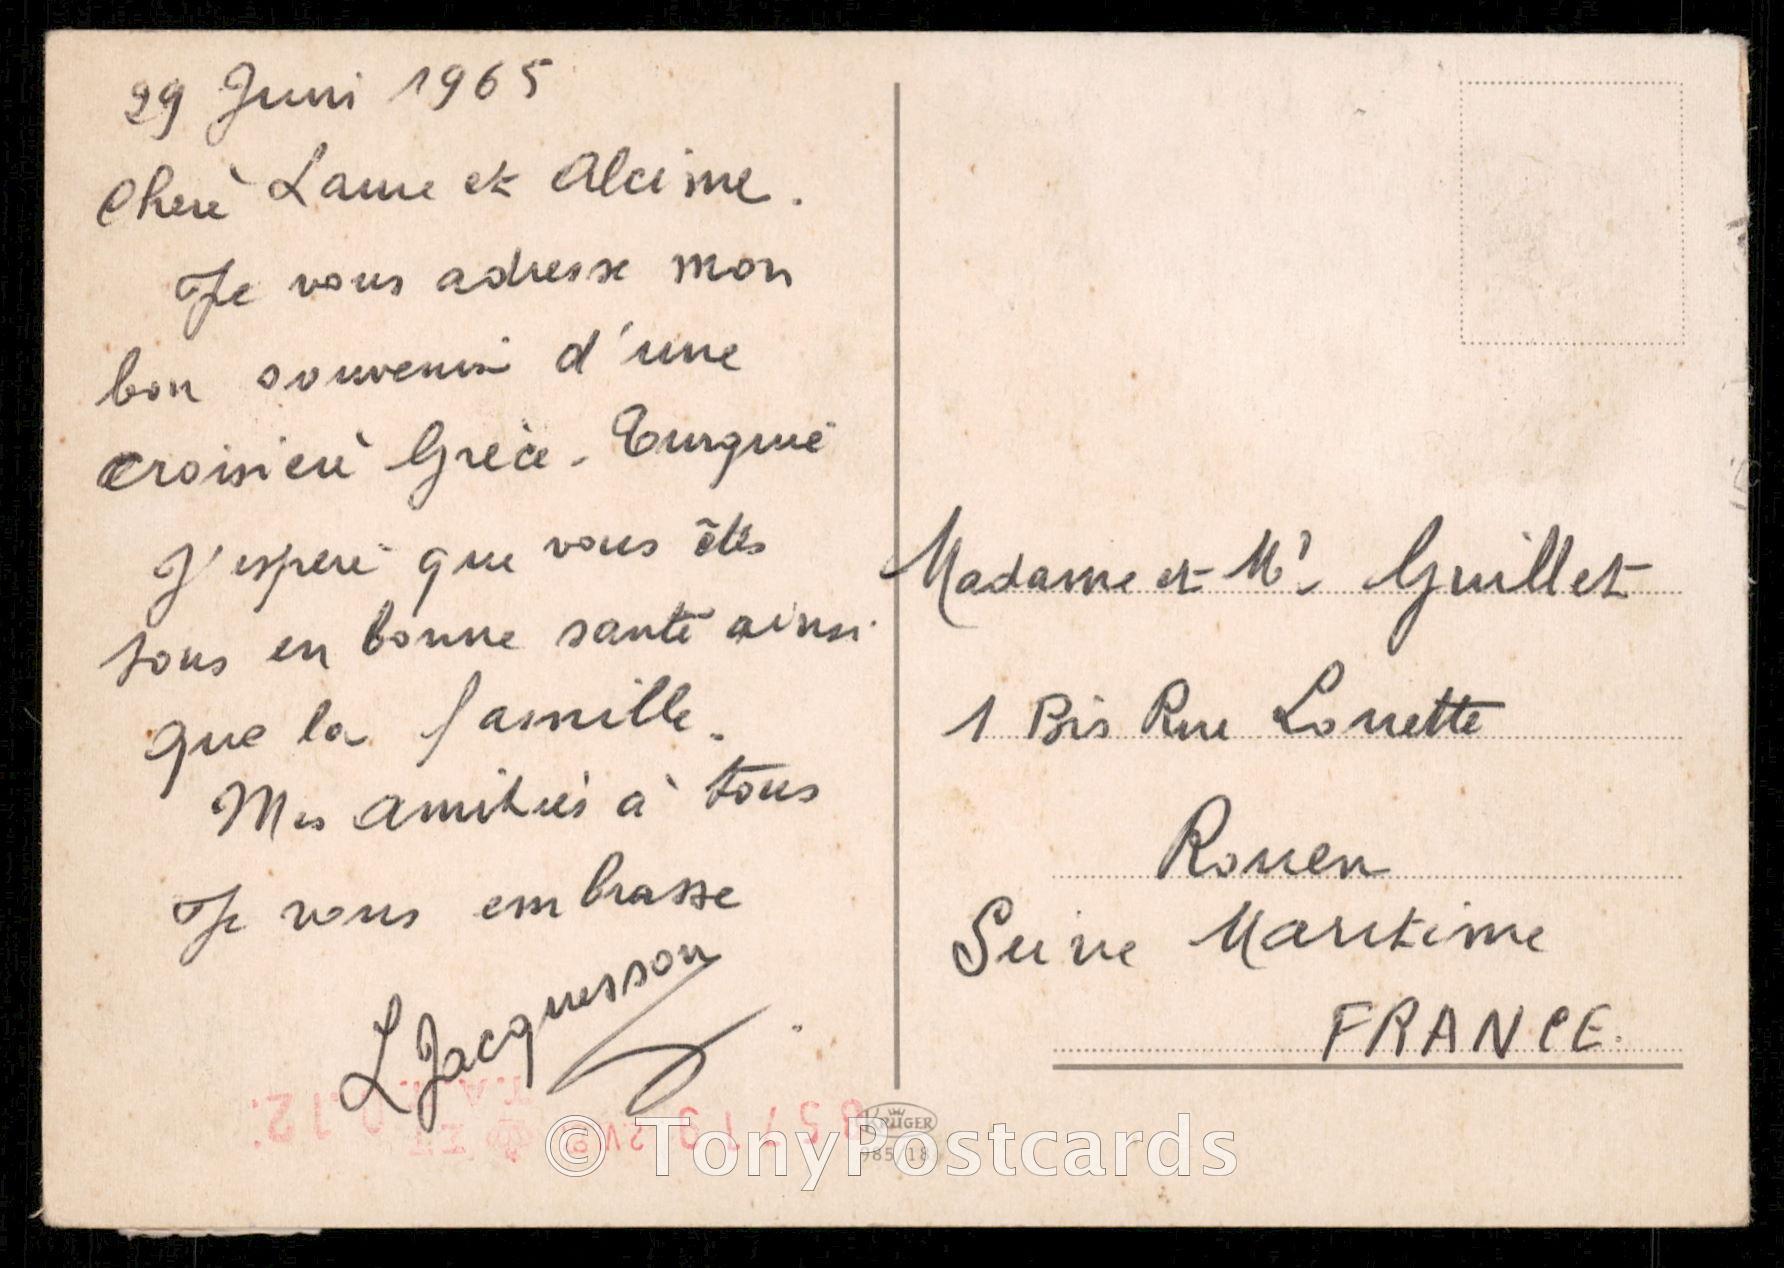 29 Juni 1965
Cherè Laure et Alcime.
Je vous adresse mon
bon souvenir d'une
croisierè Grèce - Turquie
J'espere que vous êtes
tous en bonne santé ainsi
que la famille.
Mes amitiés à tous
Je vous embrasse
L Jacquesson
Madame et Mr Guillet
1 Bis Rue Louette
Rouen
Seine Maritime
FRANCE.
KRÜGER
985/18
© TonyPostcards